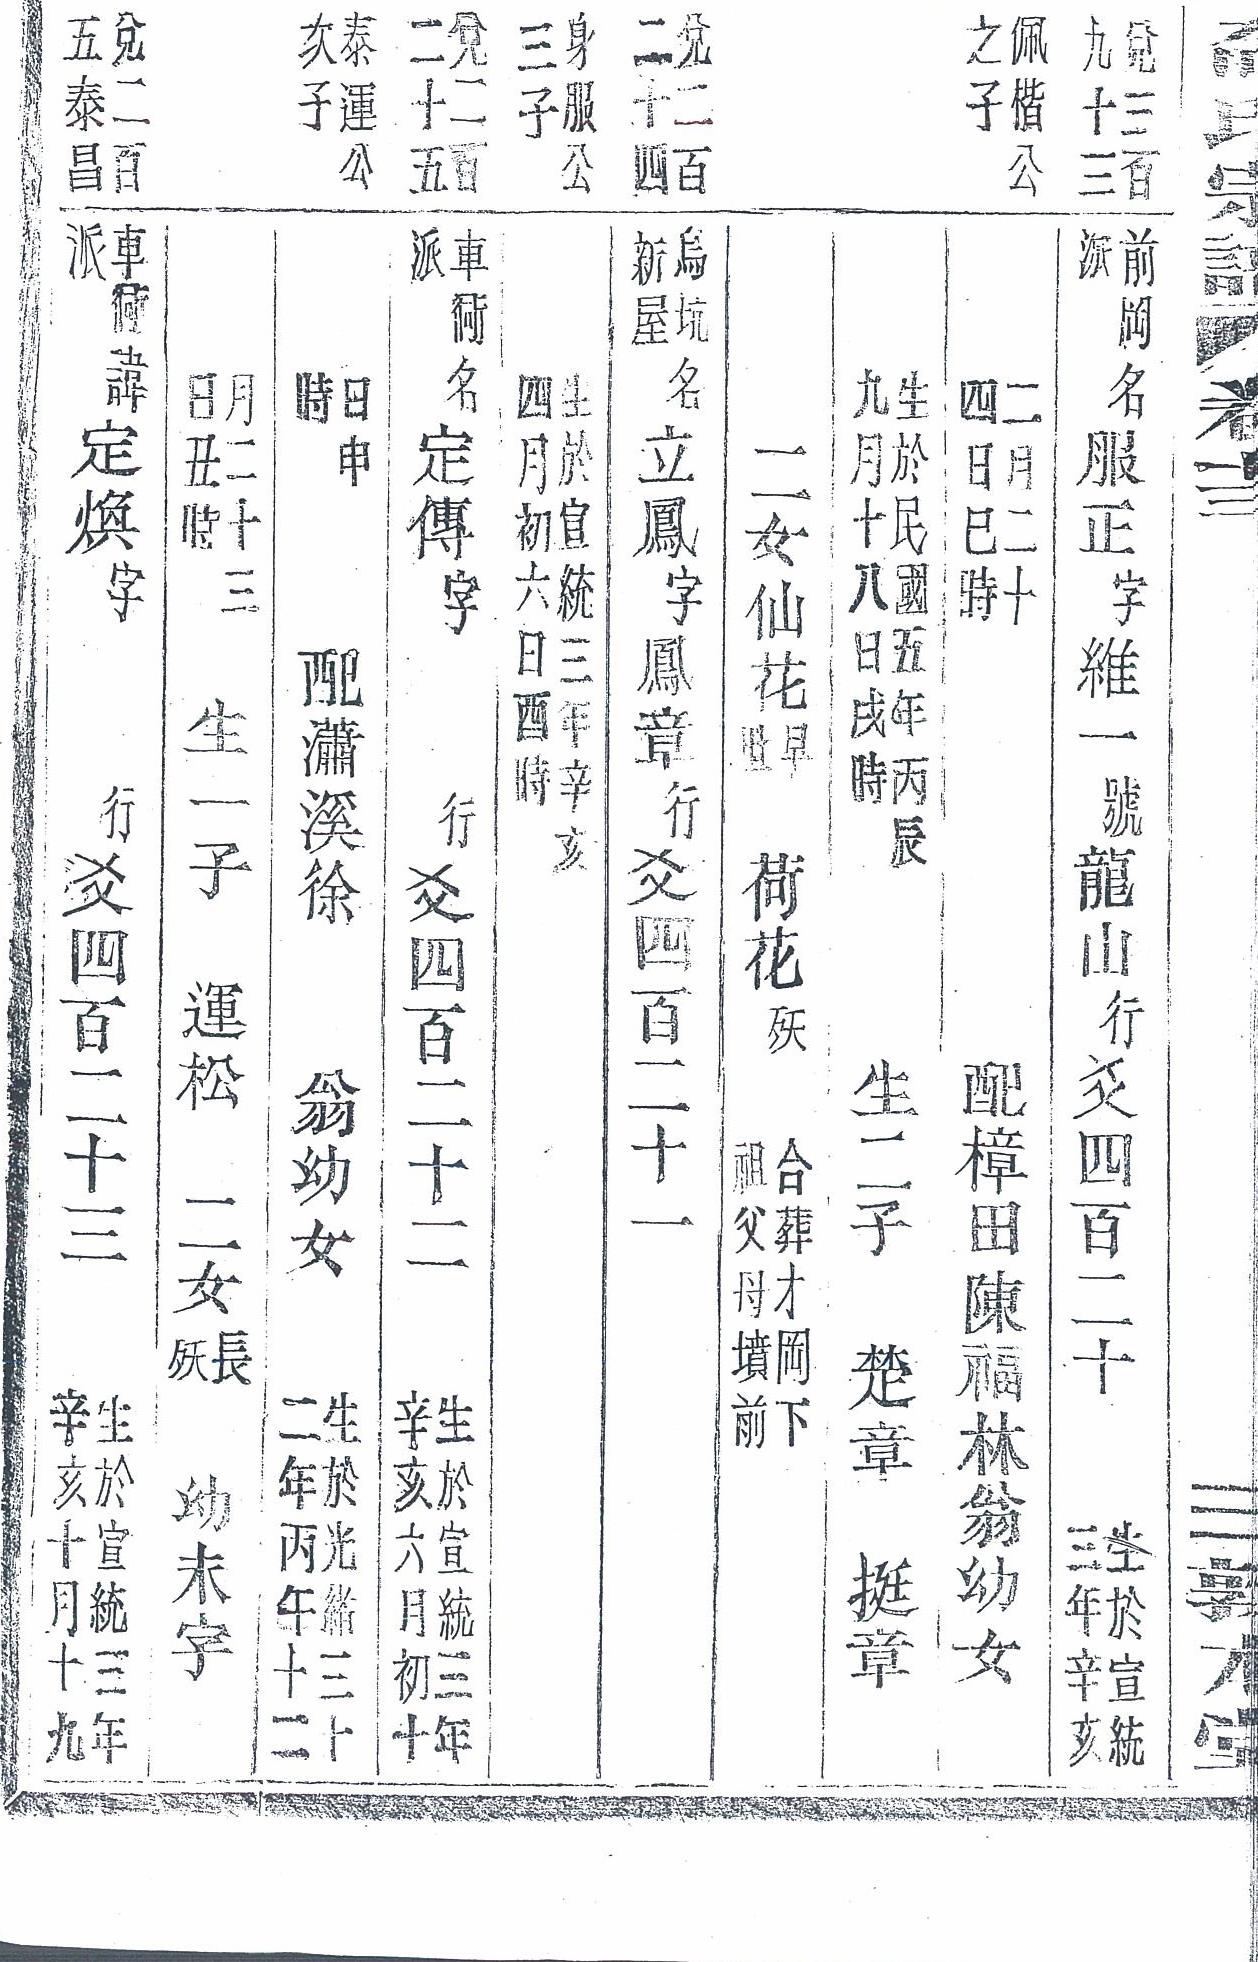 氏宗譜 卷三 三 敦本堂
兌三百九十三
前岡派 名服正 字維一 號龍山 行爻四百二十 生於宣統三年辛亥
佩楷公之子
二月二十四日巳時 配樟田陳福林翁幼女
生於民國五年丙辰九月十八日戌時 生二子 楚章 挺章
二女仙花早 荷花殀 合葬才岡下祖父母墳前
兌二百二十四
烏坑新屋 名立鳳 字鳳章 行爻四百二十一
身服公三子
生於宣統三年辛亥四月初六日酉時
兌二百二十五
車衕派 名定傳 字 行爻四百二十二 生於宣統三年辛亥六月初十
泰運公次子
日申時 配瀟溪徐 翁幼女 生於光緒三十二年丙午十二
月二十三日丑時 生一子 運松 二女長殀 幼未字
兌二百五泰昌
車衕派 諱定煥 字 行爻四百二十三 生於宣統三年辛亥十月十九